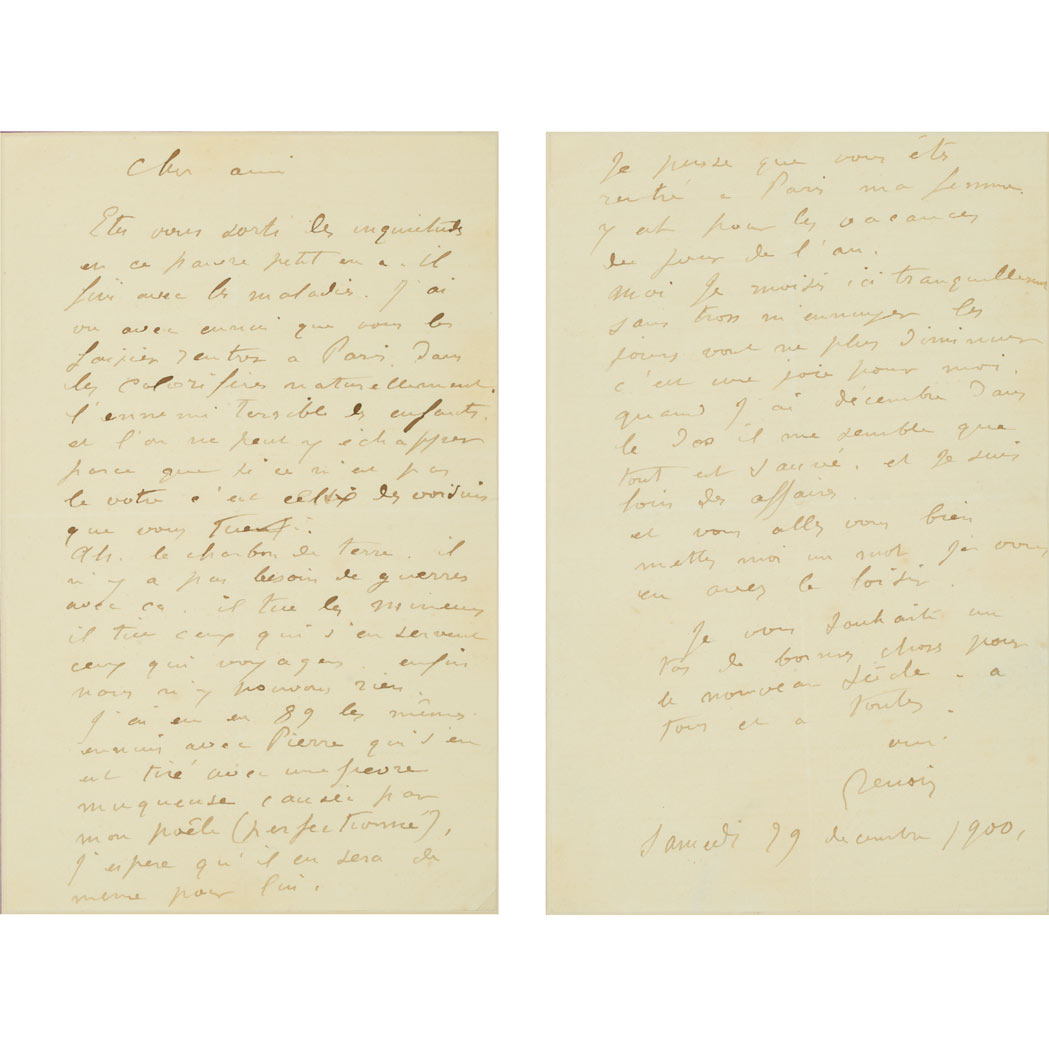 Cher ami
Etes vous sorti des inquietudes
en ce pauvre petit en a-il
fini avec les maladies. J'ai
vu avec ennui que vous les
laissiez rentrer a Paris. Dans
les calorifères naturellement.
l'ennemi terrible des enfants.
et l'on ne peut y échapper
parce que si ce n'est pas
le votre c'est celui des voisins
que vous tue.
Ah. le charbon de terre. il
n'y a pas besoin de guerres
avec ca. il tue les mineurs
il tue ceux qui s'en servent
ceux qui voyagent. enfin
nous n'y pouvons rien.
J'ai eu en 89 les mêmes
ennuis avec Pierre qui s'en
est tiré avec une fievre
muqueuse causée par
mon poêle (perfectionné),
J'espere qu'il en sera de
meme pour lui.
Je pense que vous êtes
rentré a Paris ma femme
y est pour les vacances
du jour de l'an.
Moi Je moisis ici tranquillement
sans trop m'ennuyer les
jours vont ne plus diminuer
c'est une joie pour moi.
quand J'ai décembre dans
le dos il me semble que
tout est sauvé. et Je suis
loin des affaires.
et vous allez vous bien
mettez moi un mot si vous
en avez le loisir.
Je vous souhaite un
tas de bonnes choses pour
le nouveau siècle. a
tous et a toutes.
ami
Renoir
Samedi 29 decembre 1900.